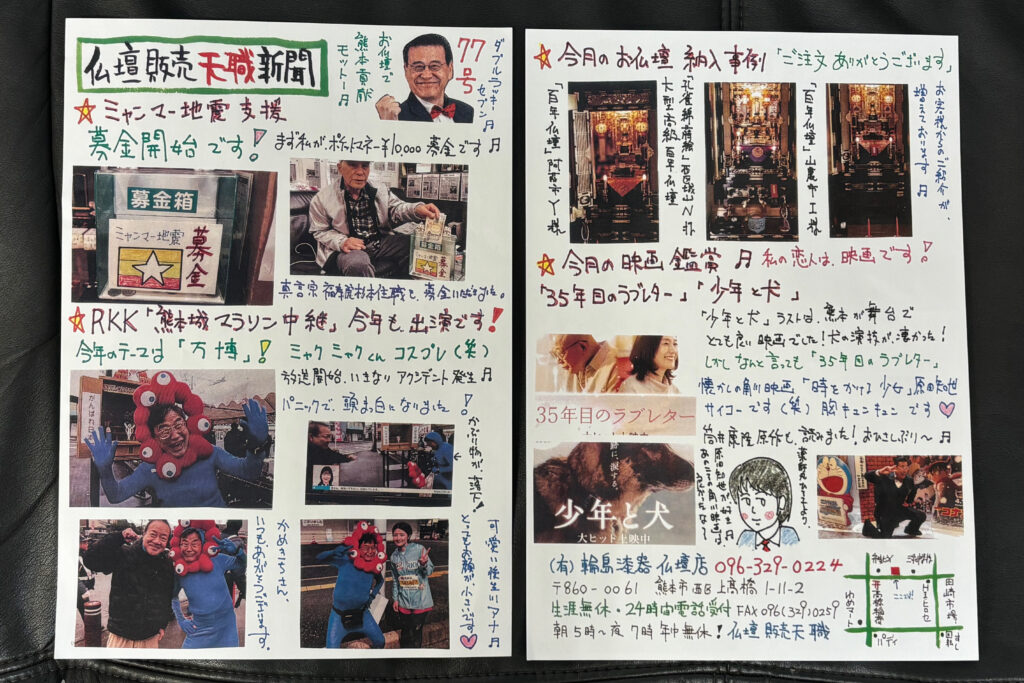 仏壇販売天職新聞
お仏壇で
熊本貢献
モットー♫
77号
ダブルラッキーセブン♫
☆ミャンマー地震支援
募金開始です!
まず私が、ポケットマネー¥10,000募金です♫
募金箱
ミャンマー地震
募金
募金箱
募金
住職と、募金いただきました。
☆RKK「熊本城マラソン中継」今年も出演です!
今年のテーマは「万博」!
ミャクミャクくんコスプレ(笑)
放送開始、いきなりアクシデント発生♫
パニックで、頭まっ白になりました!
かぶり物が、落下!
がんばれ日
かめきちさん、
いつもありがとうございます。
可愛い後生川アナ♫
とってもお顔が小さいです♡
☆今月のお仏壇納入事例「ご注文ありがとうございます」
お客様からのご紹介が、
増えております♫
「百年仏壇」山鹿市I様
大型高級百年仏壇
「百年仏壇」阿蘇市Y様
☆今月の映画鑑賞♫私の恋人は、映画です!
「35年目のラブレター」「少年と犬」
「少年と犬」ラストは、熊本が舞台で
とても良い映画でした!犬の演技が、凄かった!
しかしなんと言っても「35年目のラブレター」
懐かしの角川映画、「時をかける少女」原田知世
サイコーです(笑)胸キュンキュンです♡
筒井康隆原作も、読みました!おひさしぶり〜♫
35年目のラブレター
に、涙する。
少年と犬
大ヒット上映中
薬師丸ひろ子より、
原田知世が好き♫
あの二本の角川映画、
(有)輪島漆器仏壇店 096-329-0224
〒860-0061 熊本市西区上高橋1-11-2
生涯無休・24時間電話受付 FAX096(329)0259
朝5時〜夜7時年中無休!仏壇販売天職
ここだよ!
田崎市場
ゆめマート
パティ